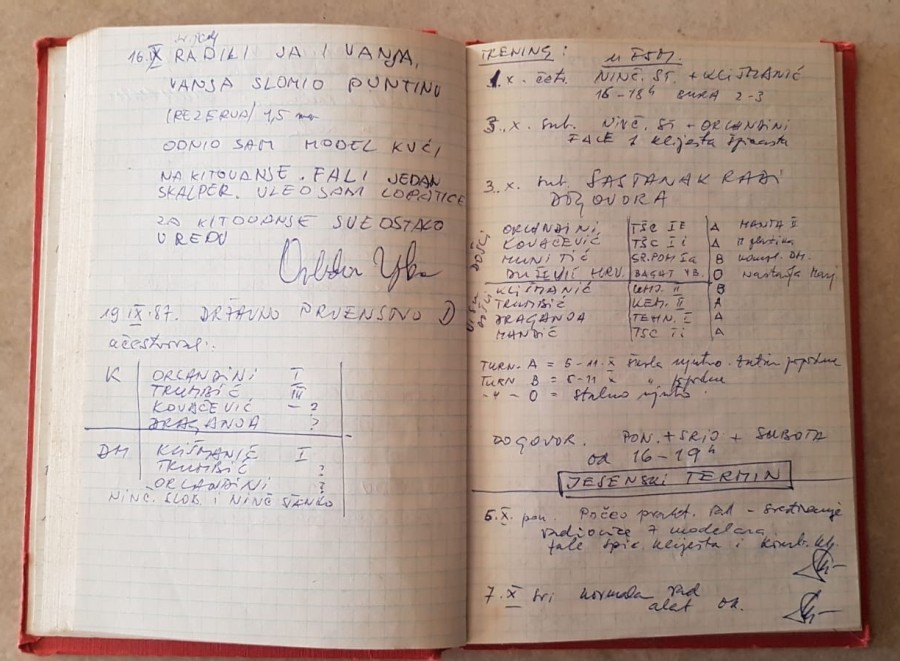 16. IX RADILI JA I VANJA,
VANJA SLOMIO PUNTINU
(REZERVA) 1,5 mm
ODNIO SAM MODEL KUĆI
NA KITOVANJE. FALI JEDAN
SKALPER. UZEO SAM LOPATICE
ZA KITOVANJE SVE OSTALO
U REDU
19 IX. 87. DRŽAVNO PRVENSTVO D
učestvovali:
K ORLANDINI I
TRUMBIĆ III
KOVAČEVIĆ - ?
DRAGANJA ?
DM KLIŠMANIĆ I
TRUMBIĆ ?
ORLANDINI ?
NINČ. SLOB. I NINČ STANKO
TRENING:
1. X. čet. NINČ. ST. + KLIŠMANIĆ
16-18h BURA 2-3
3. X. sub. NINČ. ST + ORLANDINI
FALE 1 kliješta špicasta
3. X. sub. SASTANAK RADI
DOGOVORA
ORLANDINI TŠC II A MANTA II
KOVAČEVIĆ TŠC II A
MUNITIĆ SR. POM Ia B kompl. DM.
DUŽEVIĆ HRV. BAGAT VB. O
KLIŠMANIĆ KEM. II B
TRUMBIĆ KEM. II A
DRAGANJA TEHN. I A
MANDIĆ TŠC II A
TURN. A = 5-11. X škola ujutro. Zatim popodne
TURN B = 5-11 X " popodne
-"- O = stalno ujutro.
DOGOVOR. PON. + SRIJ + SUBOTA
od 16-19h
JESENSKI TERMIN
5. X. pon. Počeo prakt. rad -
radionice 7 modelara
fale špic. kliješta i komb. klj.
7. X sri normalan rad
alat OK.